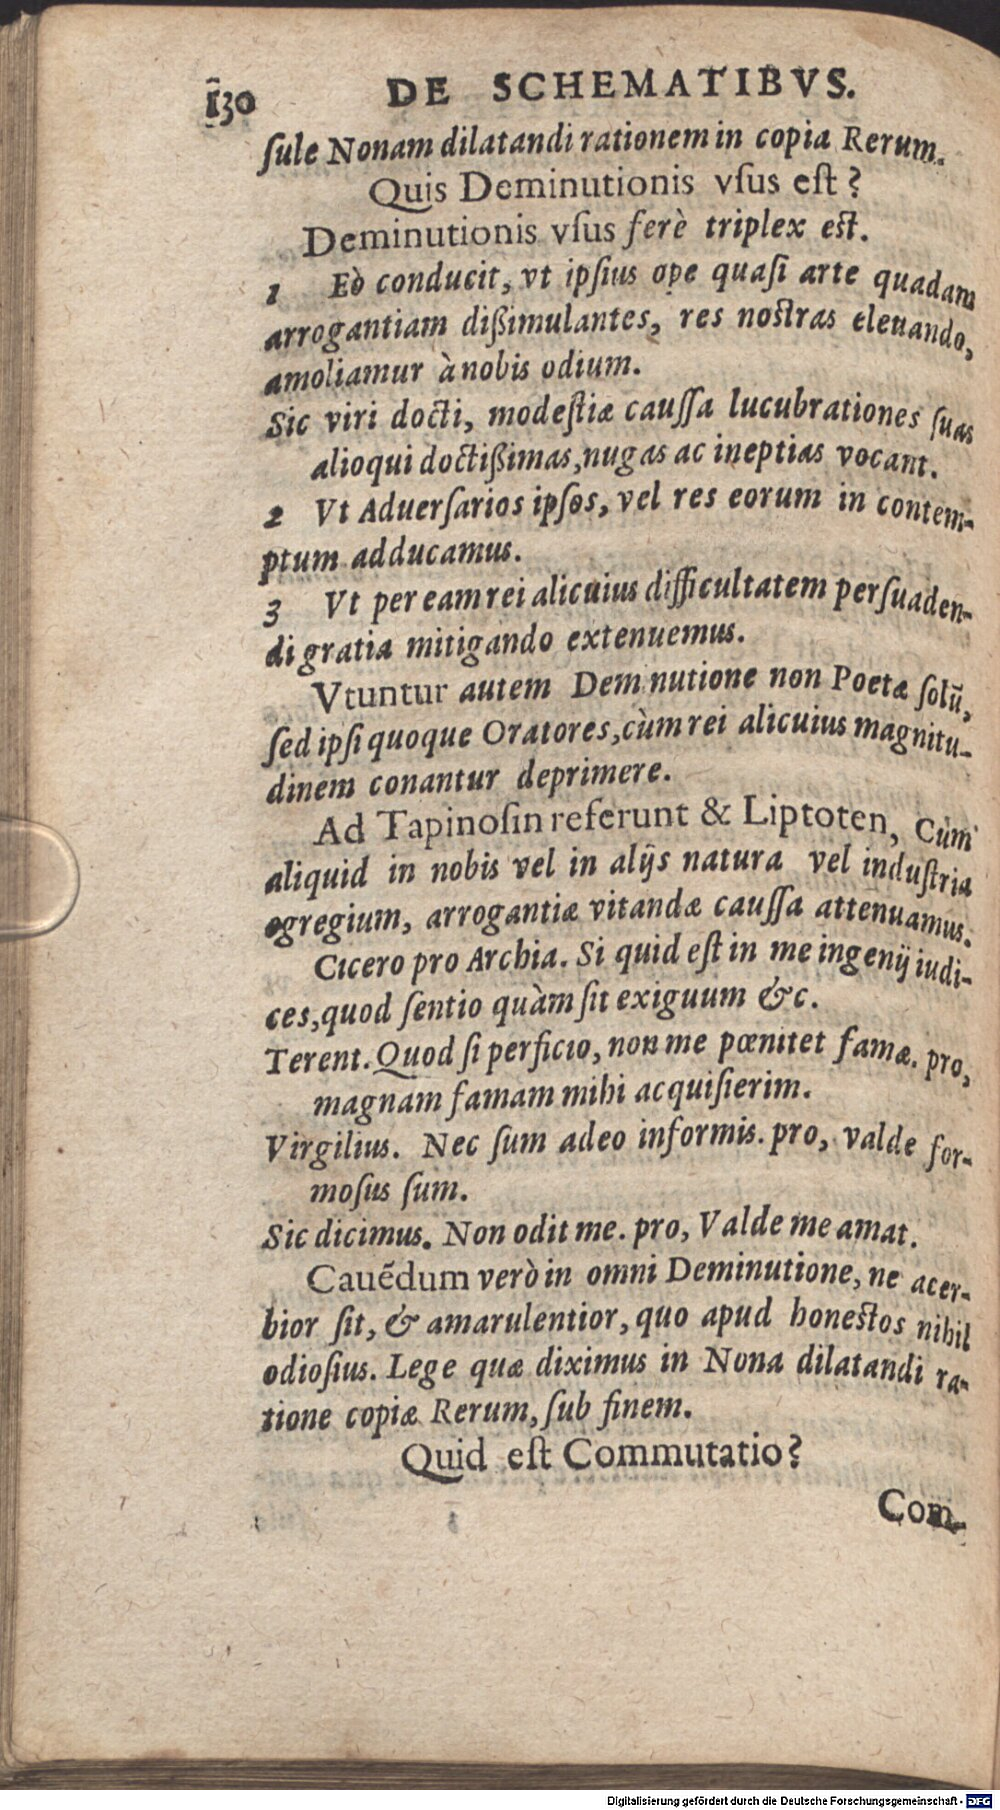 130 DE SCHEMATIBVS.
ſule Nonam dilatandi rationem in copia Rerum.
Quis Deminutionis vſus eſt?
Deminutionis vſus ferè triplex eſt.
1 Eò conducit, vt ipſius ope quaſi arte quadam
arrogantiam dißimulantes, res noſtras eleuando,
amoliamur à nobis odium.
Sic viri docti, modeſtiæ cauſſa lucubrationes ſuas
alioqui doctißimas, nugas ac ineptias vocant.
2 Vt Aduerſarios ipſos, vel res eorum in contem-
ptum adducamus.
3 Vt per eam rei alicuius difficultatem perſuaden-
di gratia mitigando extenuemus.
Vtuntur autem Deminutione non Poetæ ſolũ,
ſed ipſi quoque Oratores, cùm rei alicuius magnitu-
dinem conantur deprimere.
Ad Tapinoſin referunt & Liptoten, Cùm
aliquid in nobis vel in alijs natura vel induſtria
egregium, arrogantiæ vitandæ cauſſa attenuamus.
Cicero pro Archia. Si quid eſt in me ingenij iudi-
ces, quod ſentio quàm ſit exiguum &c.
Terent. Quod ſi perficio, non me pœnitet famæ. pro,
magnam famam mihi acquiſierim.
Virgilius. Nec ſum adeo informis. pro, valde for-
moſus ſum.
Sic dicimus. Non odit me. pro, Valde me amat.
Cauẽdum verò in omni Deminutione, ne acer-
bior ſit, & amarulentior, quo apud honeſtos nihil
odioſius. Lege quæ diximus in Nona dilatandi ra-
tione copiæ Rerum, ſub finem.
Quid eſt Commutatio?
Com-
Digitalisierung gefördert durch die Deutsche Forschungsgemeinschaft - DFG